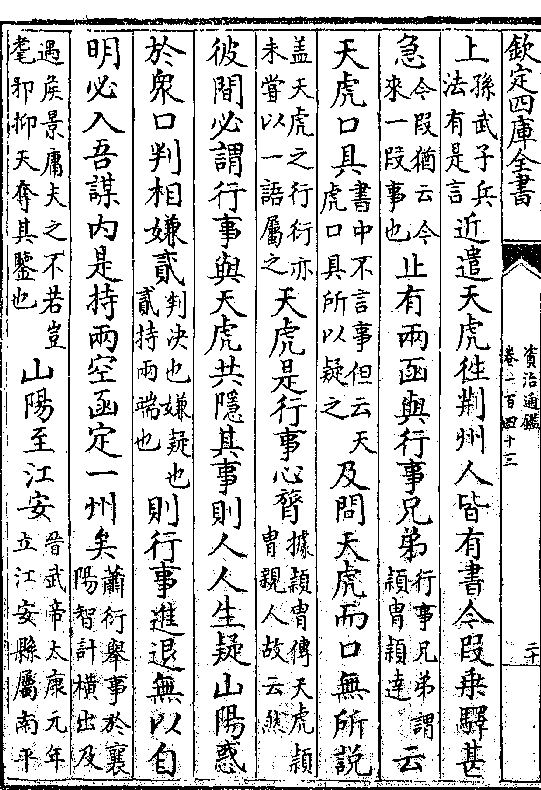 欽定四庫全書
資治通鑑
卷一百四十三
二十
上孫武子兵法有是言近遣天虎徃荆州人皆有書今段乗驛甚
急今段猶云今來一段事也止有兩函與行事兄弟行事兄弟謂穎胄穎達云
天虎口具書中不言事但云天虎口具所以疑之及問天虎而口無所説
盖天虎之行衍亦未嘗以一語屬之天虎是行事心膂據穎胄傳天虎穎胄親人故云然
彼間必謂行事與天虎共隱其事則人人生疑山陽惑
於衆口判相嫌貳判决也嫌疑也貳持兩端也則行事進退無以自
明必入吾謀内是持兩空函定一州矣蕭衍舉事於襄陽智計橫出及
遇侯景庸夫之不若豈耄邪抑天奪其鑒也山陽至江安晉武帝太康元年立江安縣屬南平